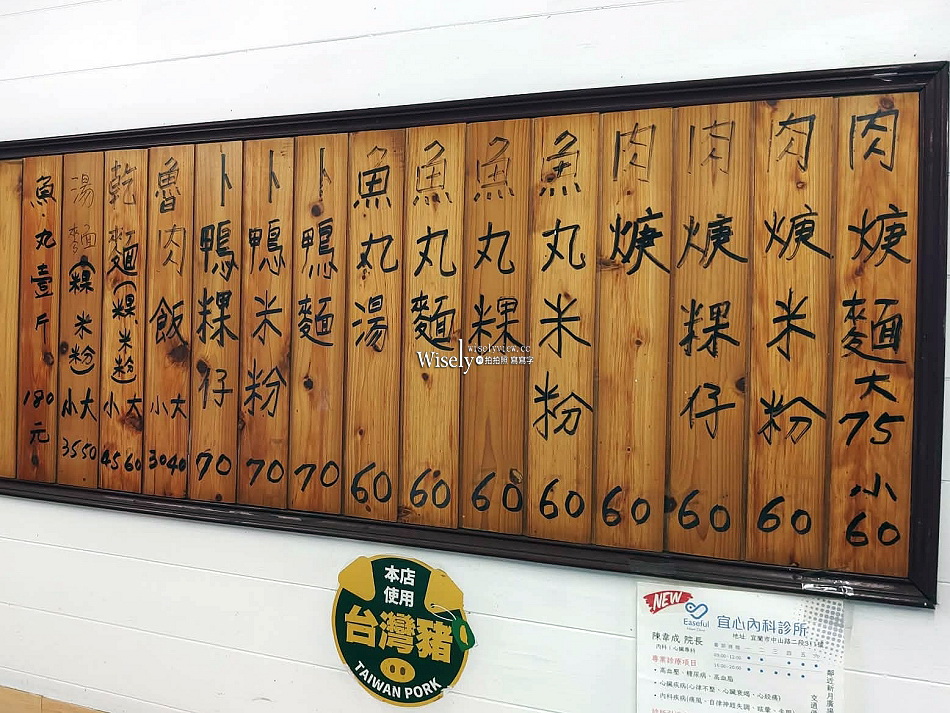 肉焿麵大75小60
肉焿米粉60
肉焿粿仔60
肉焿60
魚丸米粉60
魚丸粿60
魚丸麵60
魚丸湯60
卜鴨麵70
卜鴨米粉70
卜鴨粿仔70
魯肉飯小大3040
乾麵(粿米粉)小大4560
湯麵(粿米粉)小大3550
魚丸壹斤180元
wiselyview.cc
Wisely 拍拍照 寫寫字
本店
使用
台灣豬
TAIWAN PORK
NEW
Easeful
宜心內科診所
陳韋成 院長
地址:宜蘭市中山路二段
內科|心臟專科
專業診療項目
• 高血壓、糖尿病、高血脂
• 心臟疾病(心律不整、心臟衰竭、心絞痛)
鄰近新月廣場